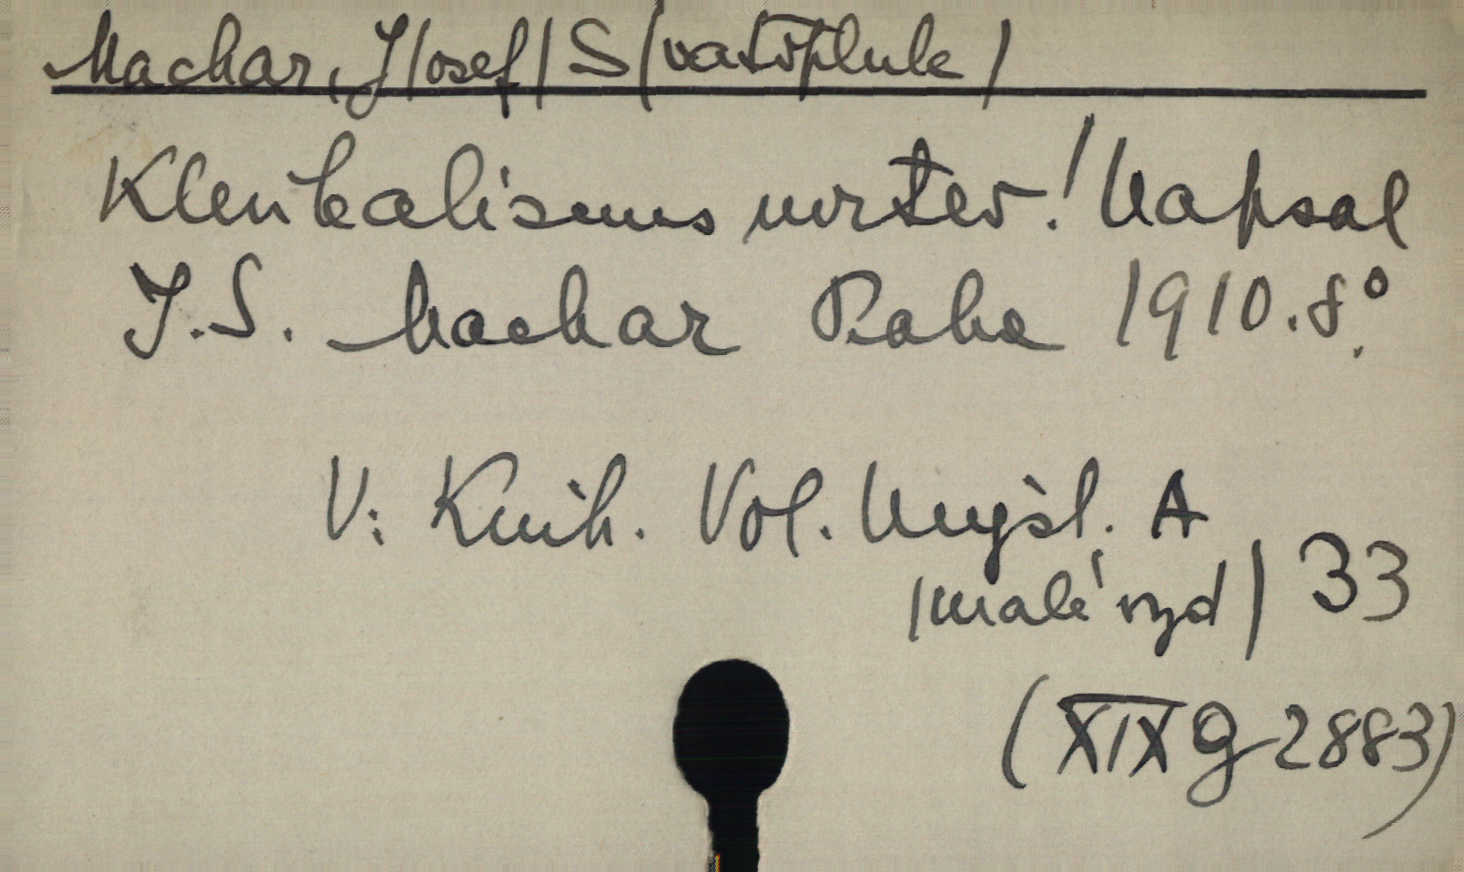 Machar, J/osef/ S/vatopluk/
Klerikalismus mrtev! Napsal
J.S. Machar Praha 1910. 8°.
V: Knih. Vol. Mysl. A
/malé vyd/ 33
(XIX g 2883)